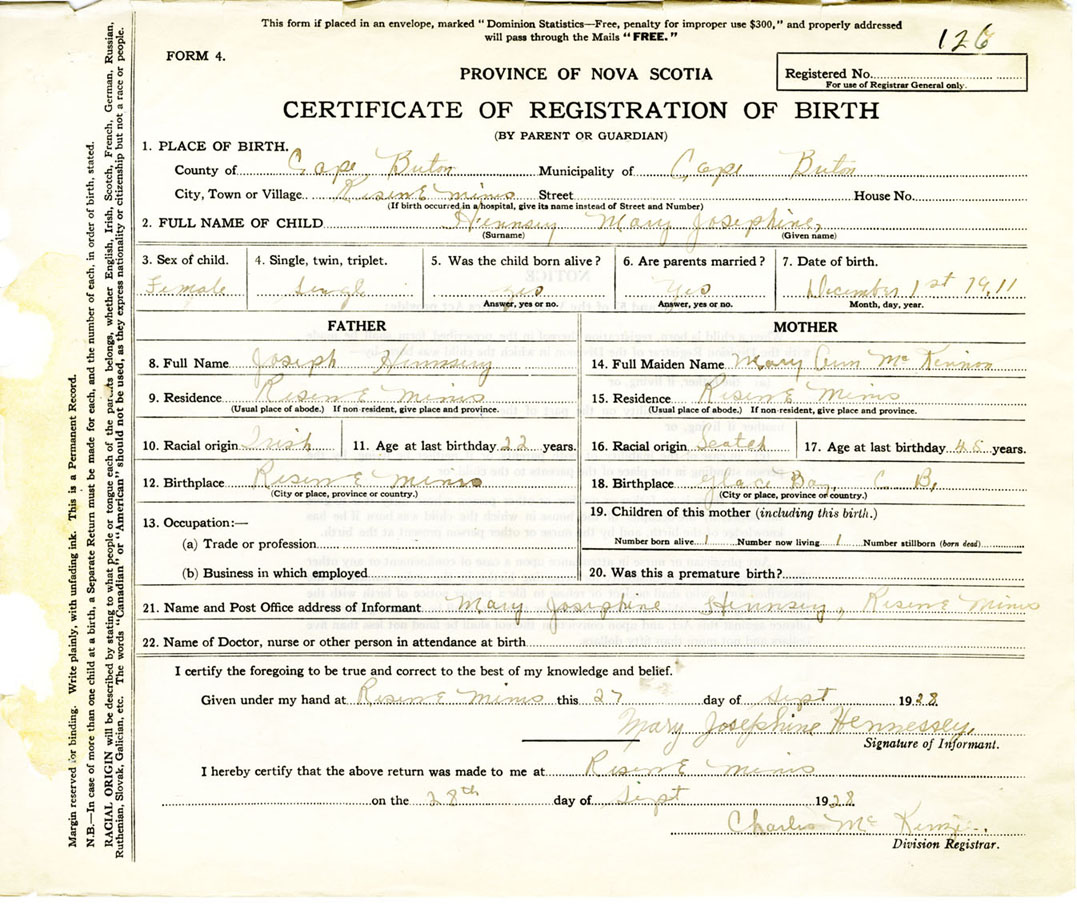 This form if placed in an envelope, marked "Dominion Statistics—Free, penalty for improper use $300," and properly addressed
will pass through the Mails "FREE."
126
FORM 4.
PROVINCE OF NOVA SCOTIA
Registered No.
For use of Registrar General only.
CERTIFICATE OF REGISTRATION OF BIRTH
(BY PARENT OR GUARDIAN)
1. PLACE OF BIRTH.
County of Cape Breton Municipality of Cape Breton
City, Town or Village Street House No.
(If birth occurred in a hospital, give its name instead of Street and Number)
2. FULL NAME OF CHILD Hennsey Mary Josephine,
(Surname) (Given name)
3. Sex of child. 4. Single, twin, triplet. 5. Was the child born alive? 6. Are parents married? 7. Date of birth.
Female Single yes Yes December 1st 1911
Answer, yes or no. Answer, yes or no. Month, day, year.
FATHER MOTHER
8. Full Name Joseph Hennsey 14. Full Maiden Name Mary Ann McKinnon
9. Residence 15. Residence
(Usual place of abode.) If non-resident, give place and province. (Usual place of abode.) If non-resident, give place and province.
10. Racial origin Irish 11. Age at last birthday 22 years. 16. Racial origin Scotch 17. Age at last birthday years.
12. Birthplace 18. Birthplace Glace Bay, C. B,
(City or place, province or country.) (City or place, province or country.)
13. Occupation:— 19. Children of this mother (including this birth.)
(a) Trade or profession Number born alive 1 Number now living 1 Number stillborn (born dead)
(b) Business in which employed 20. Was this a premature birth?
21. Name and Post Office address of Informant Mary Josephine Hennsey,
22. Name of Doctor, nurse or other person in attendance at birth
I certify the foregoing to be true and correct to the best of my knowledge and belief.
Given under my hand at this 27 day of Sept 1928
Mary Josephine Hennessey,
Signature of Informant.
I hereby certify that the above return was made to me at
on the 28th day of Sept 1928
Charles Mc
Division Registrar.
Margin reserved for binding. Write plainly, with unfading ink. This is a Permanent Record.
N.B.—In case of more than one child at a birth, a Separate Return must be made for each, and the number of each, in order of birth, stated.
RACIAL ORIGIN will be described by stating to what people or tongue each of the parents belongs, whether English, Irish, Scotch, French, German, Russian,
Ruthenian, Slovak, Galician, etc. The words "Canadian" or "American" should not be used, as they express nationality or citizenship but not a race or people.